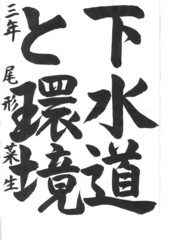 下水道
と環境
三年 尾形菜生